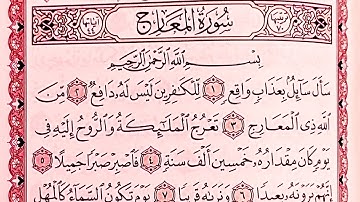 سُورَةُ المَعَارِجِ
بِسْمِ اللَّهِ الرَّحْمَٰنِ الرَّحِيمِ
سَأَلَ سَآئِلٌۢ بِعَذَابٍ وَاقِعٍ ۝١ لِّلْكَٰفِرِينَ لَيْسَ لَهُۥ دَافِعٌ ۝٢ مِّنَ
ٱللَّهِ ذِى ٱلْمَعَارِجِ ۝٣ تَعْرُجُ ٱلْمَلَٰٓئِكَةُ وَٱلرُّوحُ إِلَيْهِ فِى
يَوْمٍ كَانَ مِقْدَارُهُۥ خَمْسِينَ أَلْفَ سَنَةٍ ۝٤ فَٱصْبِرْ صَبْرًا جَمِيلًا ۝٥
إِنَّهُمْ يَرَوْنَهُۥ بَعِيدًا ۝٦ وَنَرَىٰهُ قَرِيبًا ۝٧ يَوْمَ تَكُونُ ٱلسَّمَآءُ كَٱلْمُهْلِ